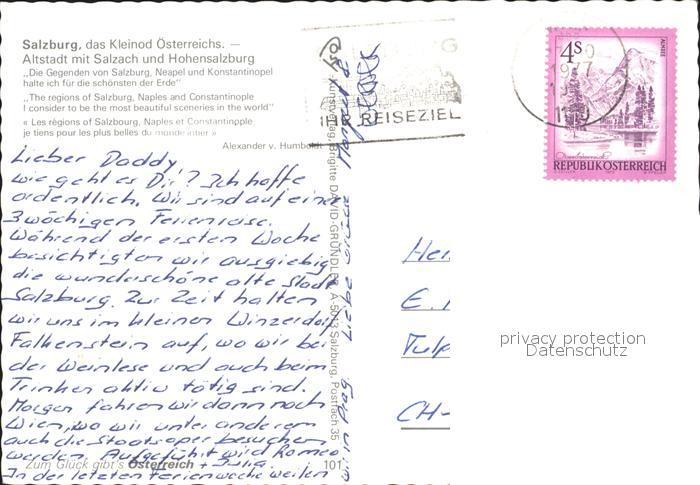 Salzburg, das Kleinod Österreichs. —
Altstadt mit Salzach und Hohensalzburg
„Die Gegenden von Salzburg, Neapel und Konstantinopel
halte ich für die schönsten der Erde"
„The regions of Salzburg, Naples and Constantinople
I consider to be the most beautiful sceneries in the world"
« Les règions of Salzburg, Naples et Constantinopple
je tiens pour les plus belles du monde intier »
Alexander v. Humboldt
Lieber Daddy
wie geht es Dir? Ich hoffe
ordentlich. Wir sind auf einer
3 wöchigen Ferienreise.
Während der ersten Woche
besichtigten wir ausgiebig
die wunderschöne alte Stadt
Salzburg. Zur Zeit halten
wir uns im kleinen Winzerdorf
Falkenstein auf, wo wir bei
der Weinlese und auch beim
Trinken aktiv tätig sind.
Morgen fahren wir dann nach
Wien, wo wir unter anderem
auch die Staatsoper besuchen
werden. Aufgeführt wird Romeo
+ Julia.
In der letzten Ferienwoche weilen
Zum Glück gibt's Österreich
101
Kunstverlag Brigitte DAVID-GRÜNDLER, A-5013 Salzburg, Postfach 35
IHR REISEZIEL
1977
4s
ALMSEE
REPUBLIK ÖSTERREICH
E.
Tulp
CH-
privacy protection
Datenschutz